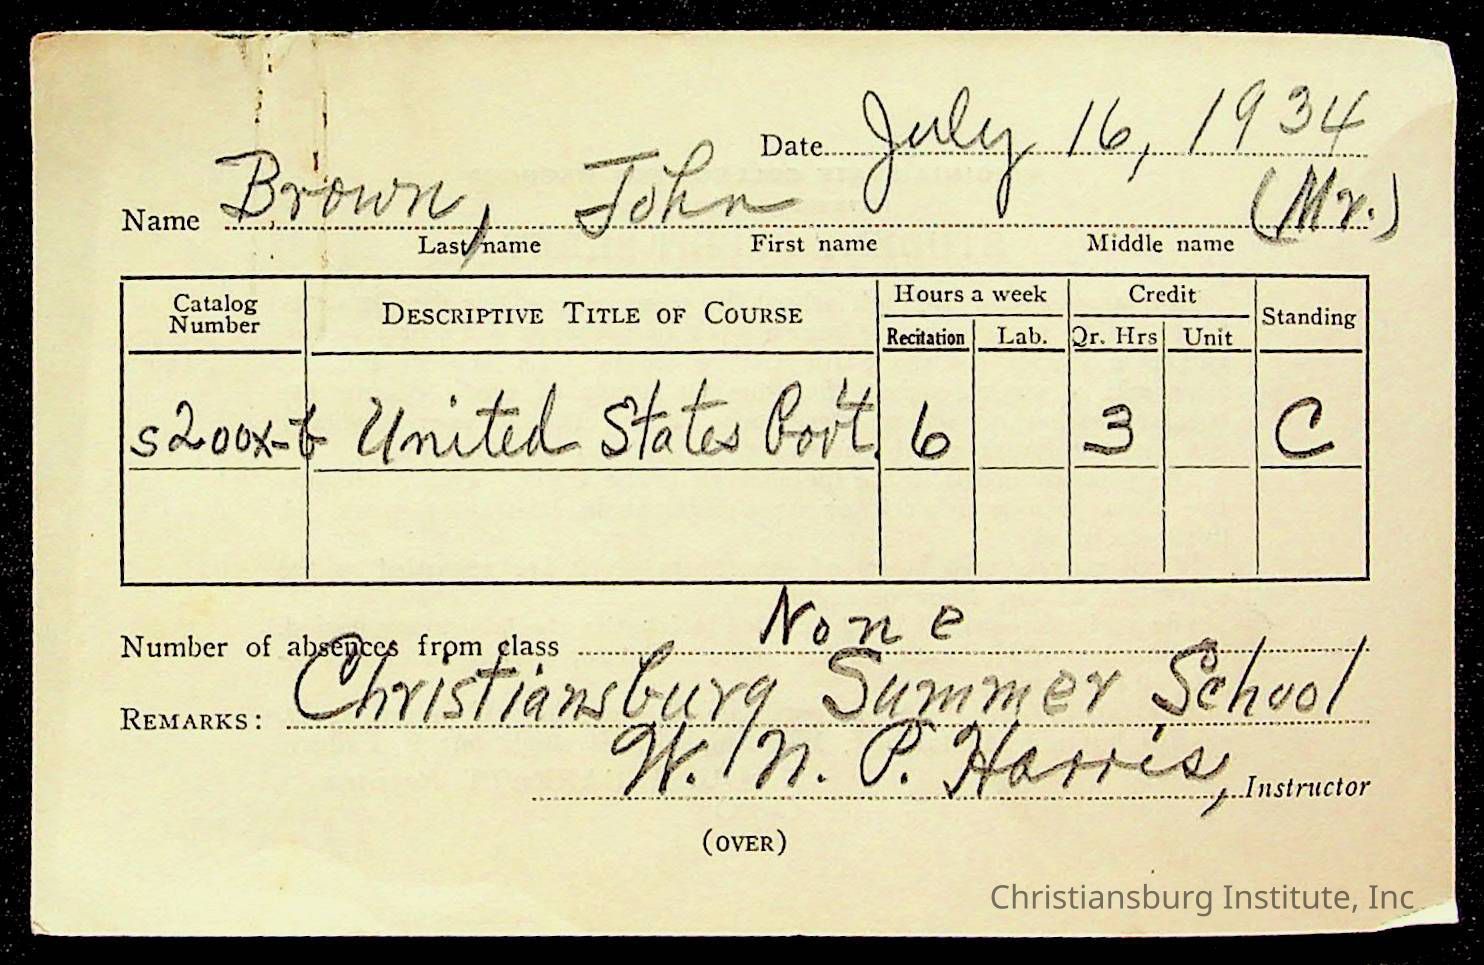 Date July 16, 1934
Name Brown, John (Mr.)
Last name First name Middle name
Catalog Number DESCRIPTIVE TITLE OF COURSE Hours a week Credit Standing
Recitation Lab. Qr. Hrs Unit
s200x-b United States Gov't. 6 3 C
Number of absences from class None
REMARKS: Christiansburg Summer School
W. N. P. Harris, Instructor
(OVER)
Christiansburg Institute, Inc